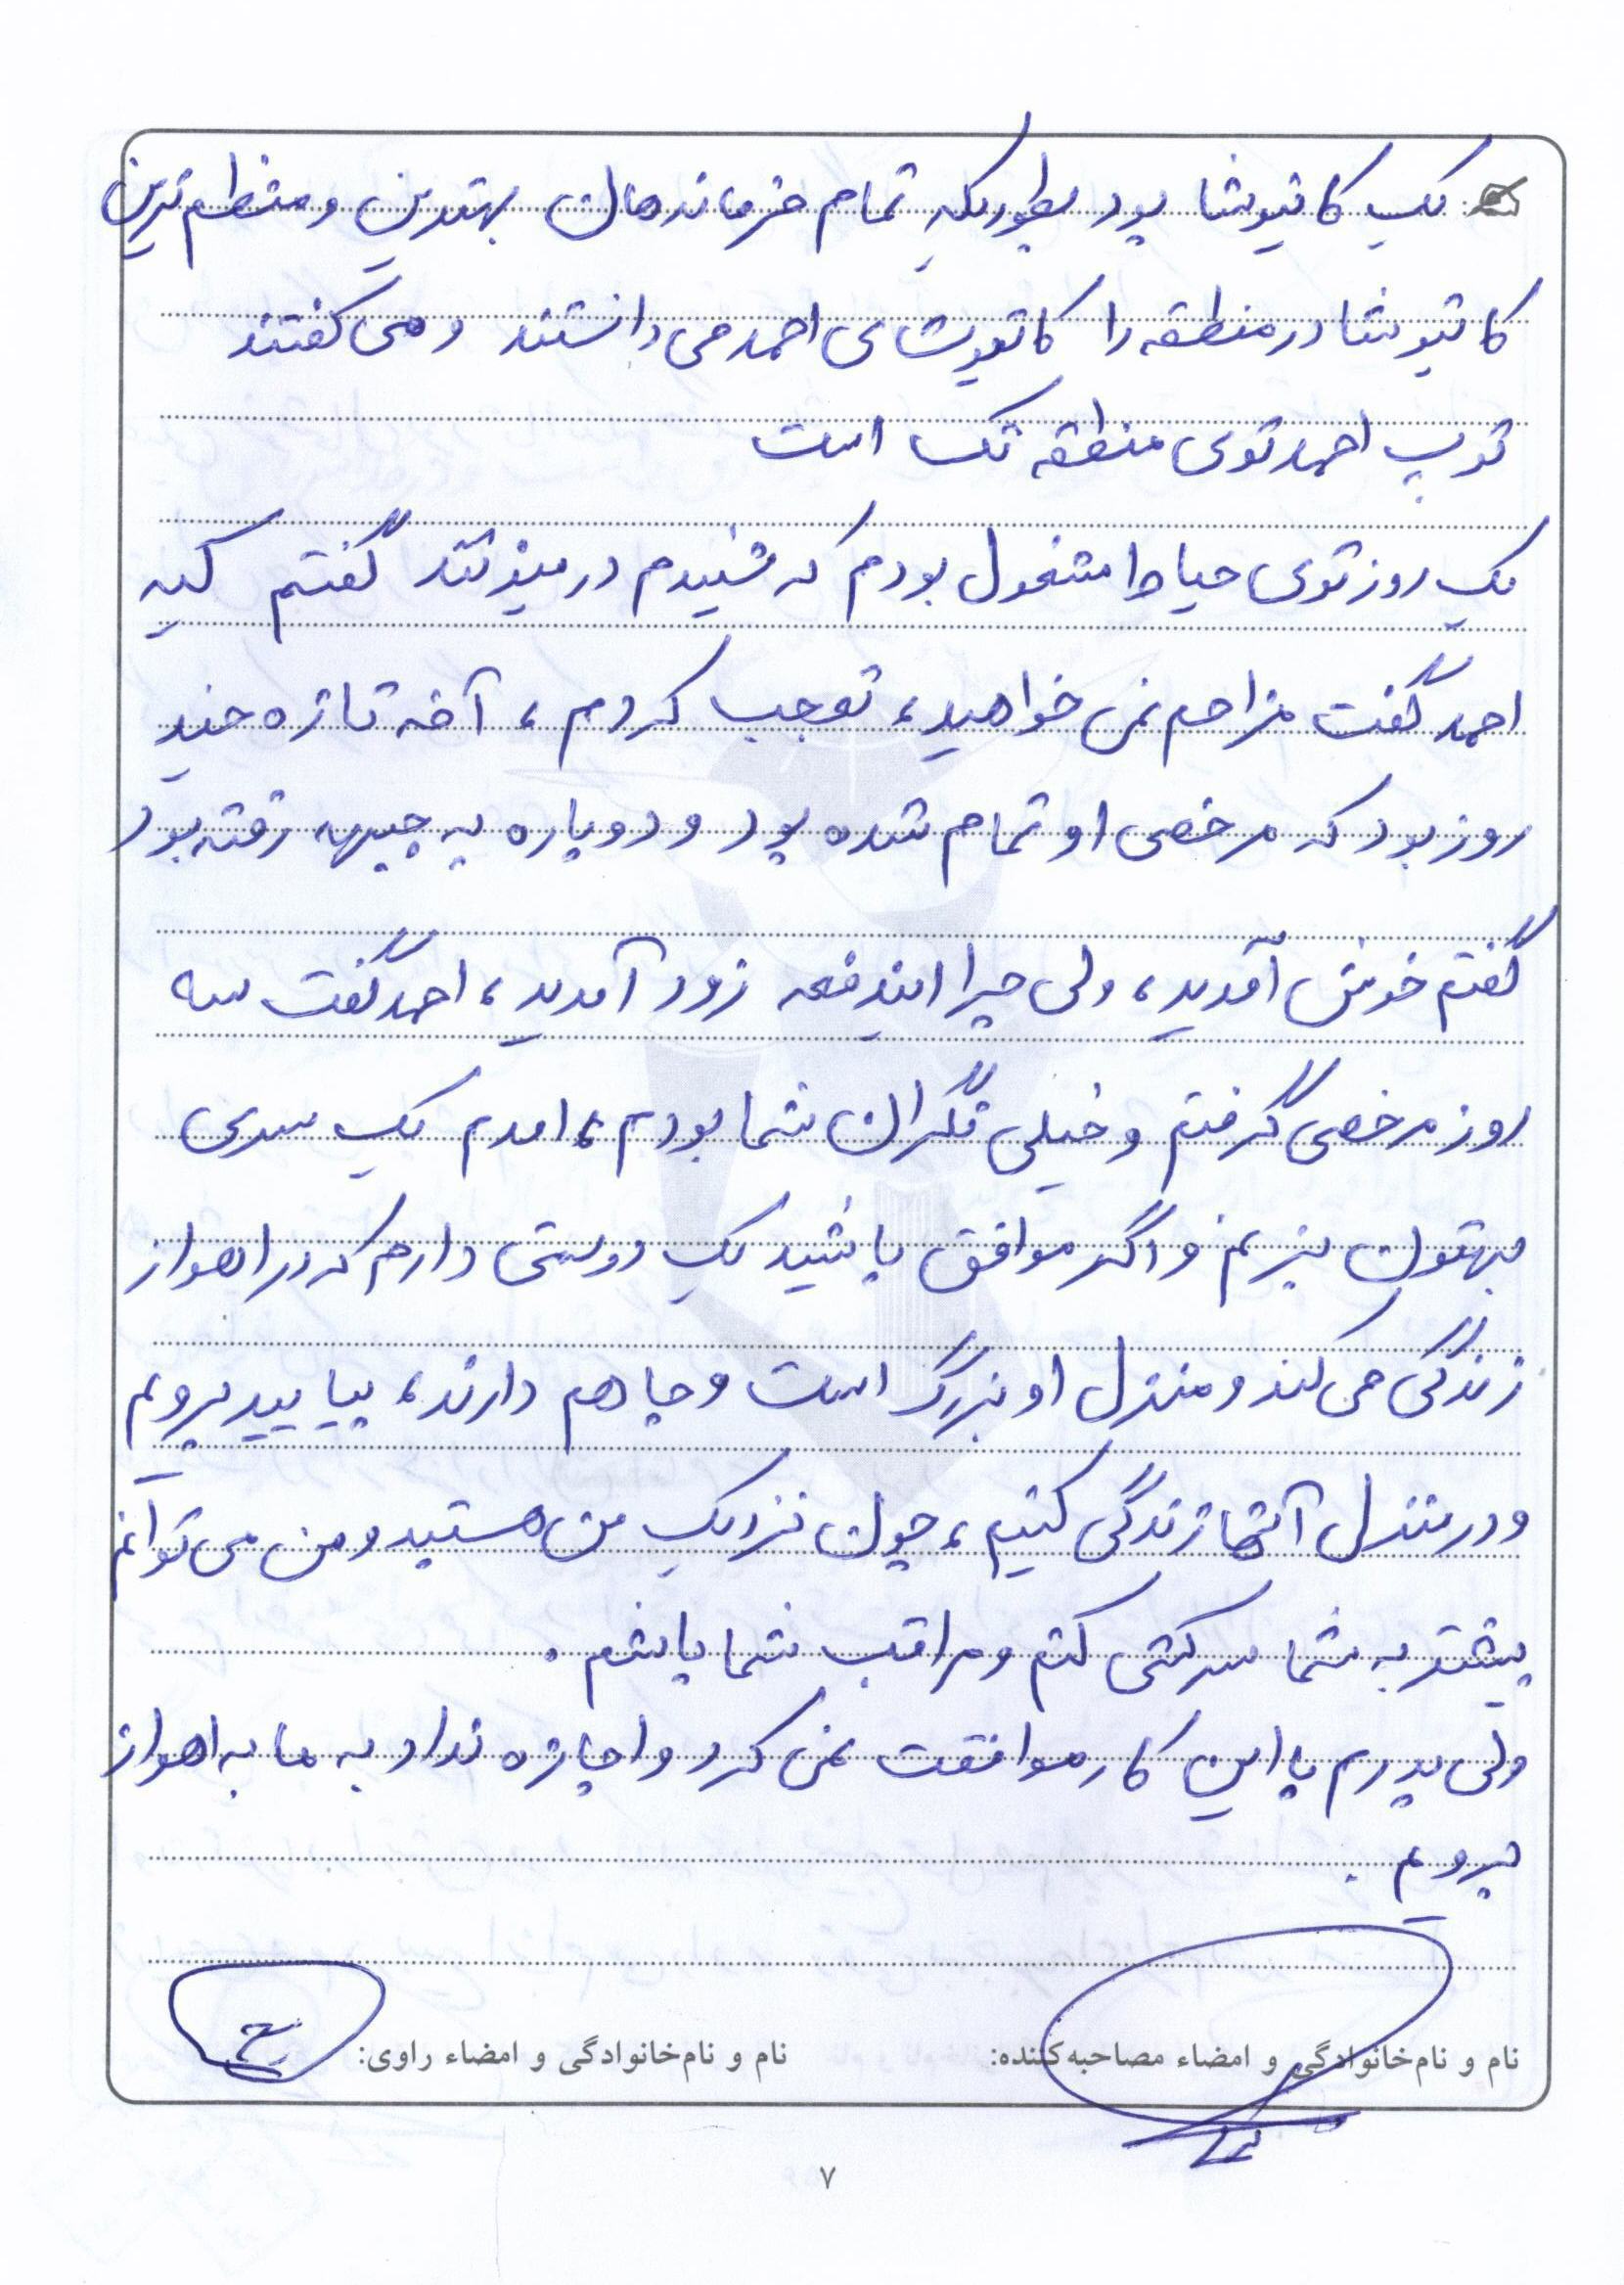 یک کاتیوشا بود بطوریکه تمام فرمانده‌هان بهترین و منظم ترین
کاتیوشا در منطقه را کاتیوشای احمد می دانستند و می گفتند
توپ احمد توی منطقه تک است
یک روز توی حیاط مشغول بودم که شنیدم در میزنند گفتم کیه
احمد گفت مزاحم نمی خواهید، تعجب کردم، آخه تازه چند
روز بود که مرخصی او تمام شده بود و دوباره به جبهه رفته بود
گفتم خوش آمدید، ولی چرا ایندفعه زود آمدید، احمد گفت سه
روز مرخصی گرفتم و خیلی نگران شما بودم، امدم یک سری
بهتون بزنم و اگر موافق باشید یک دوستی دارم که در اهواز
زندگی می کند و منزل او بزرگ است و جا هم دارند، بیایید برویم
و در منزل آنها زندگی کنیم، چون نزدیک من هستید و من می توانم
بیشتر به شما سرکشی کنم و مراقب شما باشم.
ولی پدرم با این کار موافقت نمی کرد و اجازه نداد به ما به اهواز
برویم.
نام و نام‌خانوادگی و امضاء مصاحبه‌کننده: نام و نام‌خانوادگی و امضاء راوی:
۷